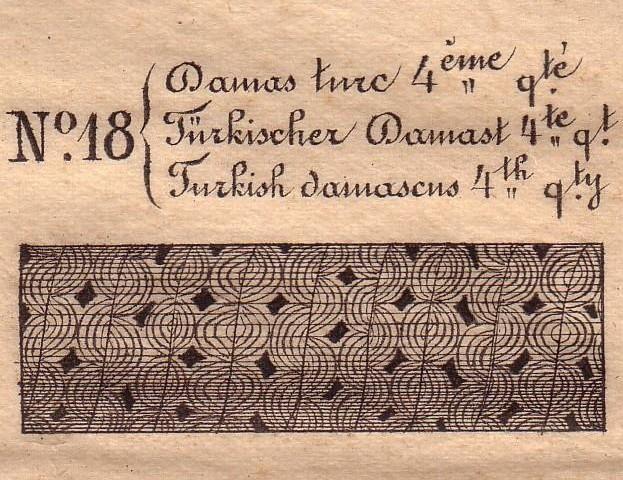 Damas turc 4ème qté
Nº.18 Türkischer Damast 4te q.t
Turkish damascus 4th q.ty